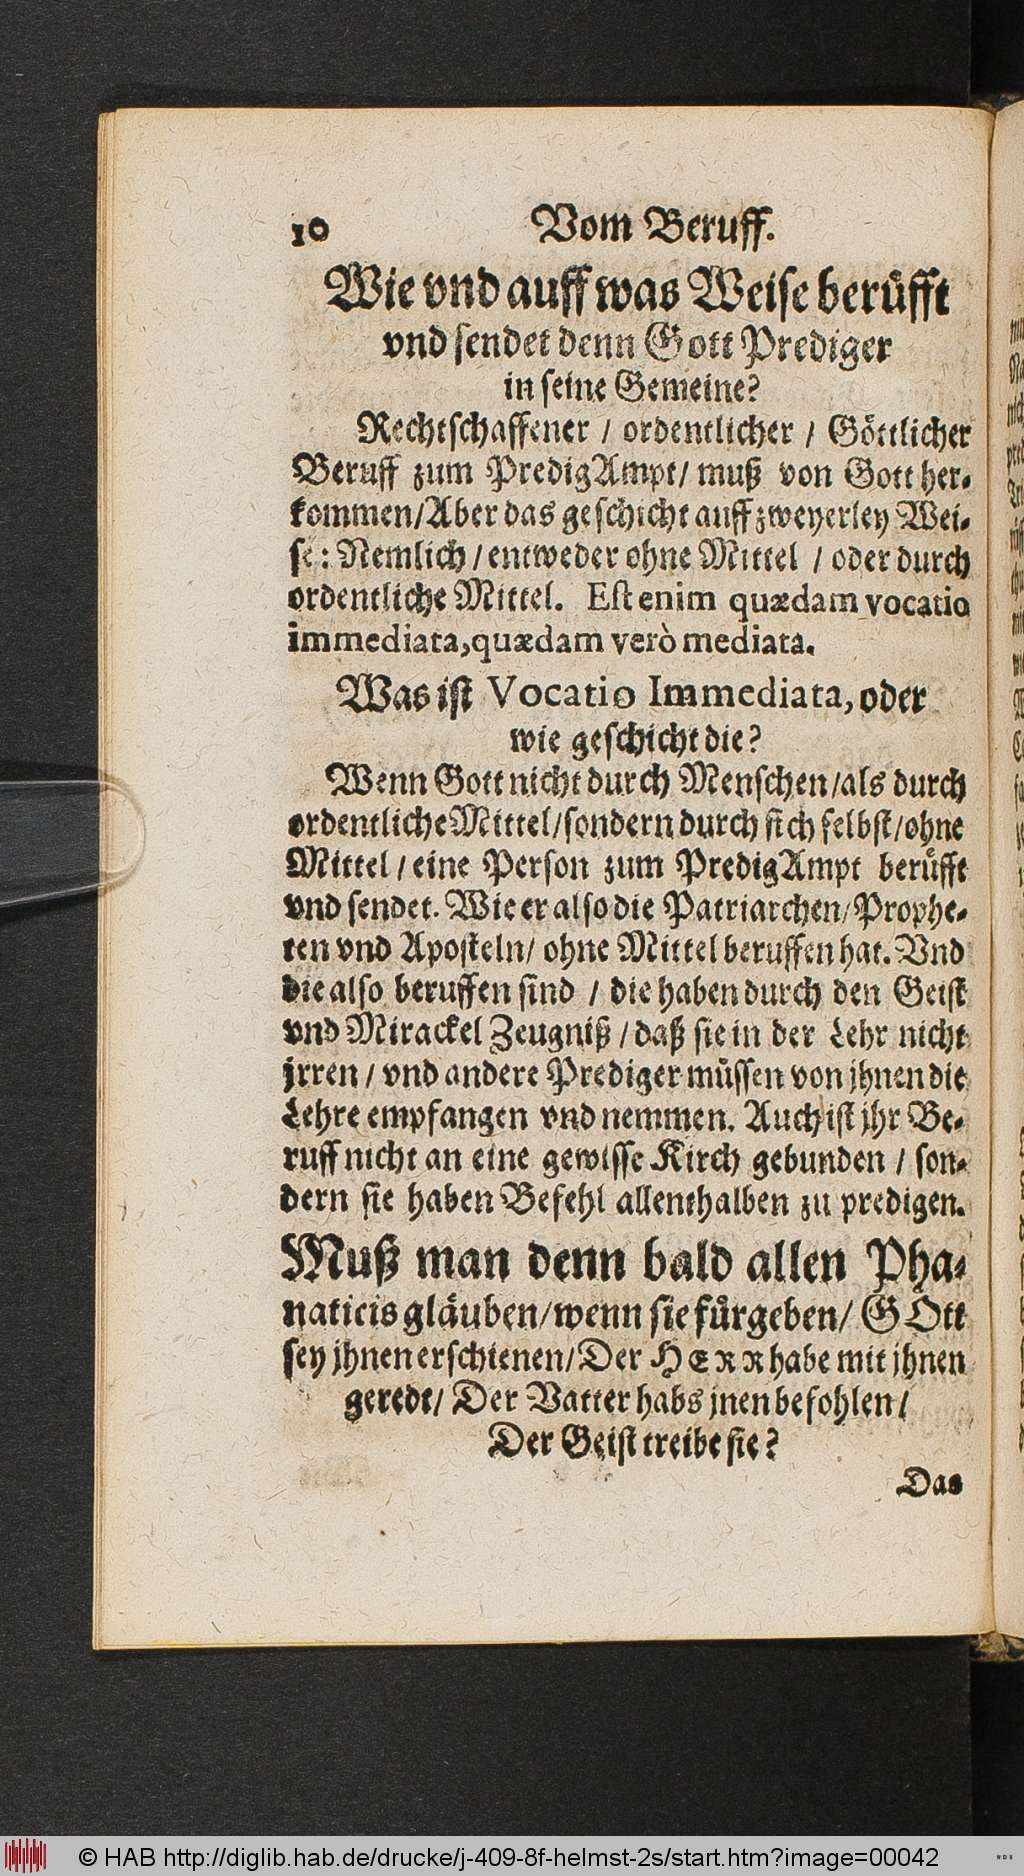 10 Vom Beruff.
Wie vnd auff was Weise beruͤfft
vnd sendet denn Gott Prediger
in seine Gemeine?
Rechtschaffener / ordentlicher / Goͤttlicher
Beruff zum PredigAmpt/ muß von Gott her-
kommen/Aber das geschicht auff zweyerley Wei-
se: Nemlich / entweder ohne Mittel / oder durch
ordentliche Mittel. Est enim quædam vocatio
immediata, quædam verò mediata.
Was ist Vocatio Immediata, oder
wie geschicht die?
Wenn Gott nicht durch Menschen/als durch
ordentliche Mittel/sondern durch sich selbst/ohne
Mittel / eine Person zum PredigAmpt beruͤfft
vnd sendet. Wie er also die Patriarchen/Prophe-
ten vnd Aposteln/ ohne Mittel beruffen hat. Vnd
die also beruffen sind / die haben durch den Geist
vnd Mirackel Zeugniß / daß sie in der Lehr nicht
jrren / vnd andere Prediger muͤssen von jhnen die
Lehre empfangen vnd nemmen. Auch ist jhr Be-
ruff nicht an eine gewisse Kirch gebunden / son-
dern sie haben Befehl allenthalben zu predigen.
Muß man denn bald allen Pha-
naticis glaͤuben/wenn sie fuͤrgeben/ GOtt
sey jhnen erschienen/Der HERR habe mit jhnen
geredt/ Der Vatter habs jnen befohlen/
Der Geist treibe sie?
Das
© HAB http://diglib.hab.de/drucke/j-409-8f-helmst-2s/start.htm?image=00042